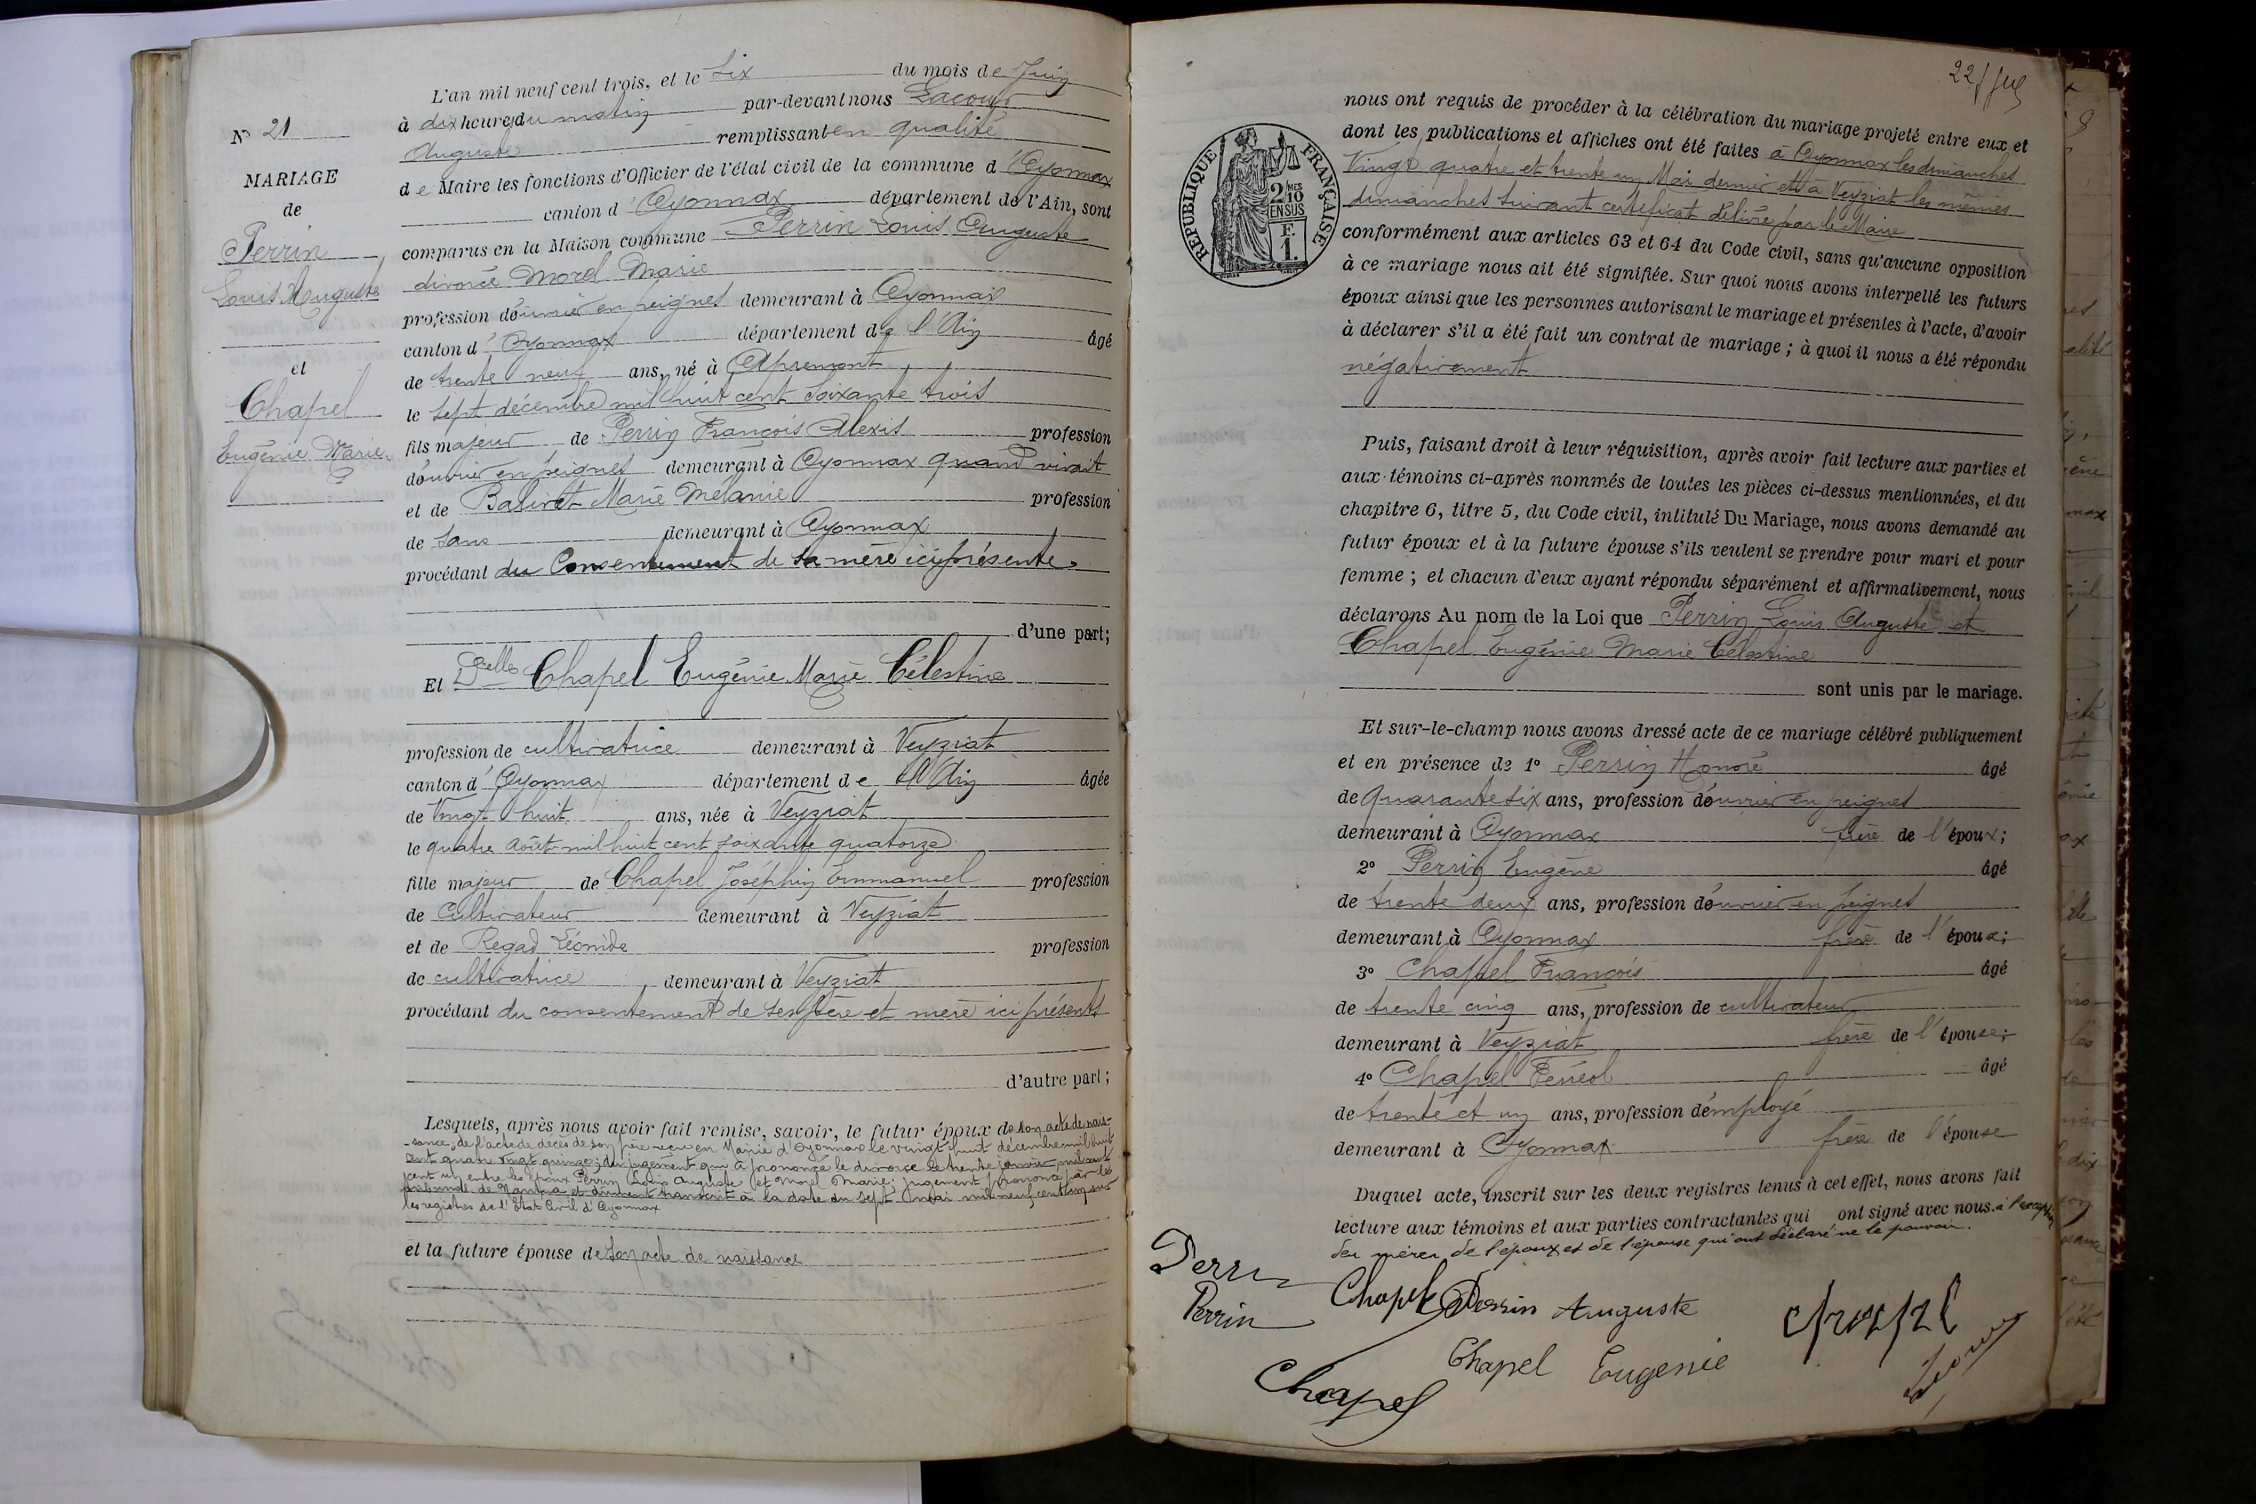 N° 21
MARIAGE
de
Perrin
Louis Auguste
et
Chapel
Eugénie Marie
L'an mil neuf cent trois, et le Six du mois de Juin
à dix heures du matin par-devant nous Lacour
Auguste remplissant en qualité
de Maire les fonctions d'Officier de l'état civil de la commune d'Oyonnax
canton d'Oyonnax département de l'Ain, sont
comparus en la Maison commune Perrin Louis Auguste
divorcé Morel Marie
profession d'ouvrier en peignes demeurant à Oyonnax
canton d'Oyonnax département de l'Ain âgé
de trente neuf ans, né à Apremont
le sept décembre mil huit cent soixante trois
fils majeur de Perrin François Alexis profession
d'ouvrier en peignes demeurant à Oyonnax quand vivait
et de Marie Mélanie profession
de sans demeurant à Oyonnax
procédant du Consentement de sa mère ici présente
d'une part;
Et Delle Chapel Eugénie Marie Célestine
profession de cultivatrice demeurant à Veyziat
canton d'Oyonnax département de l'Ain âgée
de Vingt huit ans, née à Veyziat
le quatre août mil huit cent soixante quatorze
fille majeur de Chapel Joséphin Emmanuel profession
de Cultivateur demeurant à Veyziat
et de Regad Léonide profession
de cultivatrice demeurant à Veyziat
procédant du consentement de ses père et mère ici présents
d'autre part;
Lesquels, après nous avoir fait remise, savoir, le futur époux de son acte de nais-
-sance, de l'acte de décès de son père reçu en Mairie d'Oyonnax le vingt huit décembre mil huit
cent quatre vingt quinze; du jugement qui a prononcé le divorce le trente janvier mil neuf
cent un entre les époux Perrin Louis Auguste et Morel Marie; jugement prononcé par le
tribunal de Nantua et dûment transcrit à la date du sept mai mil neuf cent un sur
les registres de l'Etat Civil d'Oyonnax
et la future épouse de son acte de naissance
22
RÉPUBLIQUE FRANÇAISE
2 MES
10
EN SUS
F.
1.
nous ont requis de procéder à la célébration du mariage projeté entre eux et
dont les publications et affiches ont été faites à Oyonnax les dimanches
Vingt quatre et trente un Mai dernier et à Veyziat les mêmes
dimanches suivant certificat délivré par le Maire
conformément aux articles 63 et 64 du Code civil, sans qu'aucune opposition
à ce mariage nous ait été signifiée. Sur quoi nous avons interpellé les futurs
époux ainsi que les personnes autorisant le mariage et présentes à l'acte, d'avoir
à déclarer s'il a été fait un contrat de mariage; à quoi il nous a été répondu
négativement
Puis, faisant droit à leur réquisition, après avoir fait lecture aux parties et
aux témoins ci-après nommés de toutes les pièces ci-dessus mentionnées, et du
chapitre 6, titre 5, du Code civil, intitulé Du Mariage, nous avons demandé au
futur époux et à la future épouse s'ils veulent se prendre pour mari et pour
femme; et chacun d'eux ayant répondu séparément et affirmativement, nous
déclarons Au nom de la Loi que Perrin Louis Auguste et
Chapel Eugénie Marie Célestine
sont unis par le mariage.
Et sur-le-champ nous avons dressé acte de ce mariage célébré publiquement
et en présence de 1° Perrin Honoré âgé
de Quarante six ans, profession d'ouvrier en peignes
demeurant à Oyonnax frère de l'époux;
2° Perrin Eugène âgé
de trente deux ans, profession d'ouvrier en peignes
demeurant à Oyonnax frère de l'époux;
3° Chapel François âgé
de trente cinq ans, profession de cultivateur
demeurant à Veyziat frère de l'épouse;
4° Chapel Ferréol âgé
de trente et un ans, profession d'employé
demeurant à Oyonnax frère de l'épouse
Duquel acte, inscrit sur les deux registres tenus à cet effet, nous avons fait
lecture aux témoins et aux parties contractantes qui ont signé avec nous. à l'exception
des mères de l'époux et de l'épouse qui ont déclaré ne le pouvoir.
Perrin
Perrin
Chapel
Perrin Auguste
Chapel
Chapel Eugenie
Chapel
Lacour